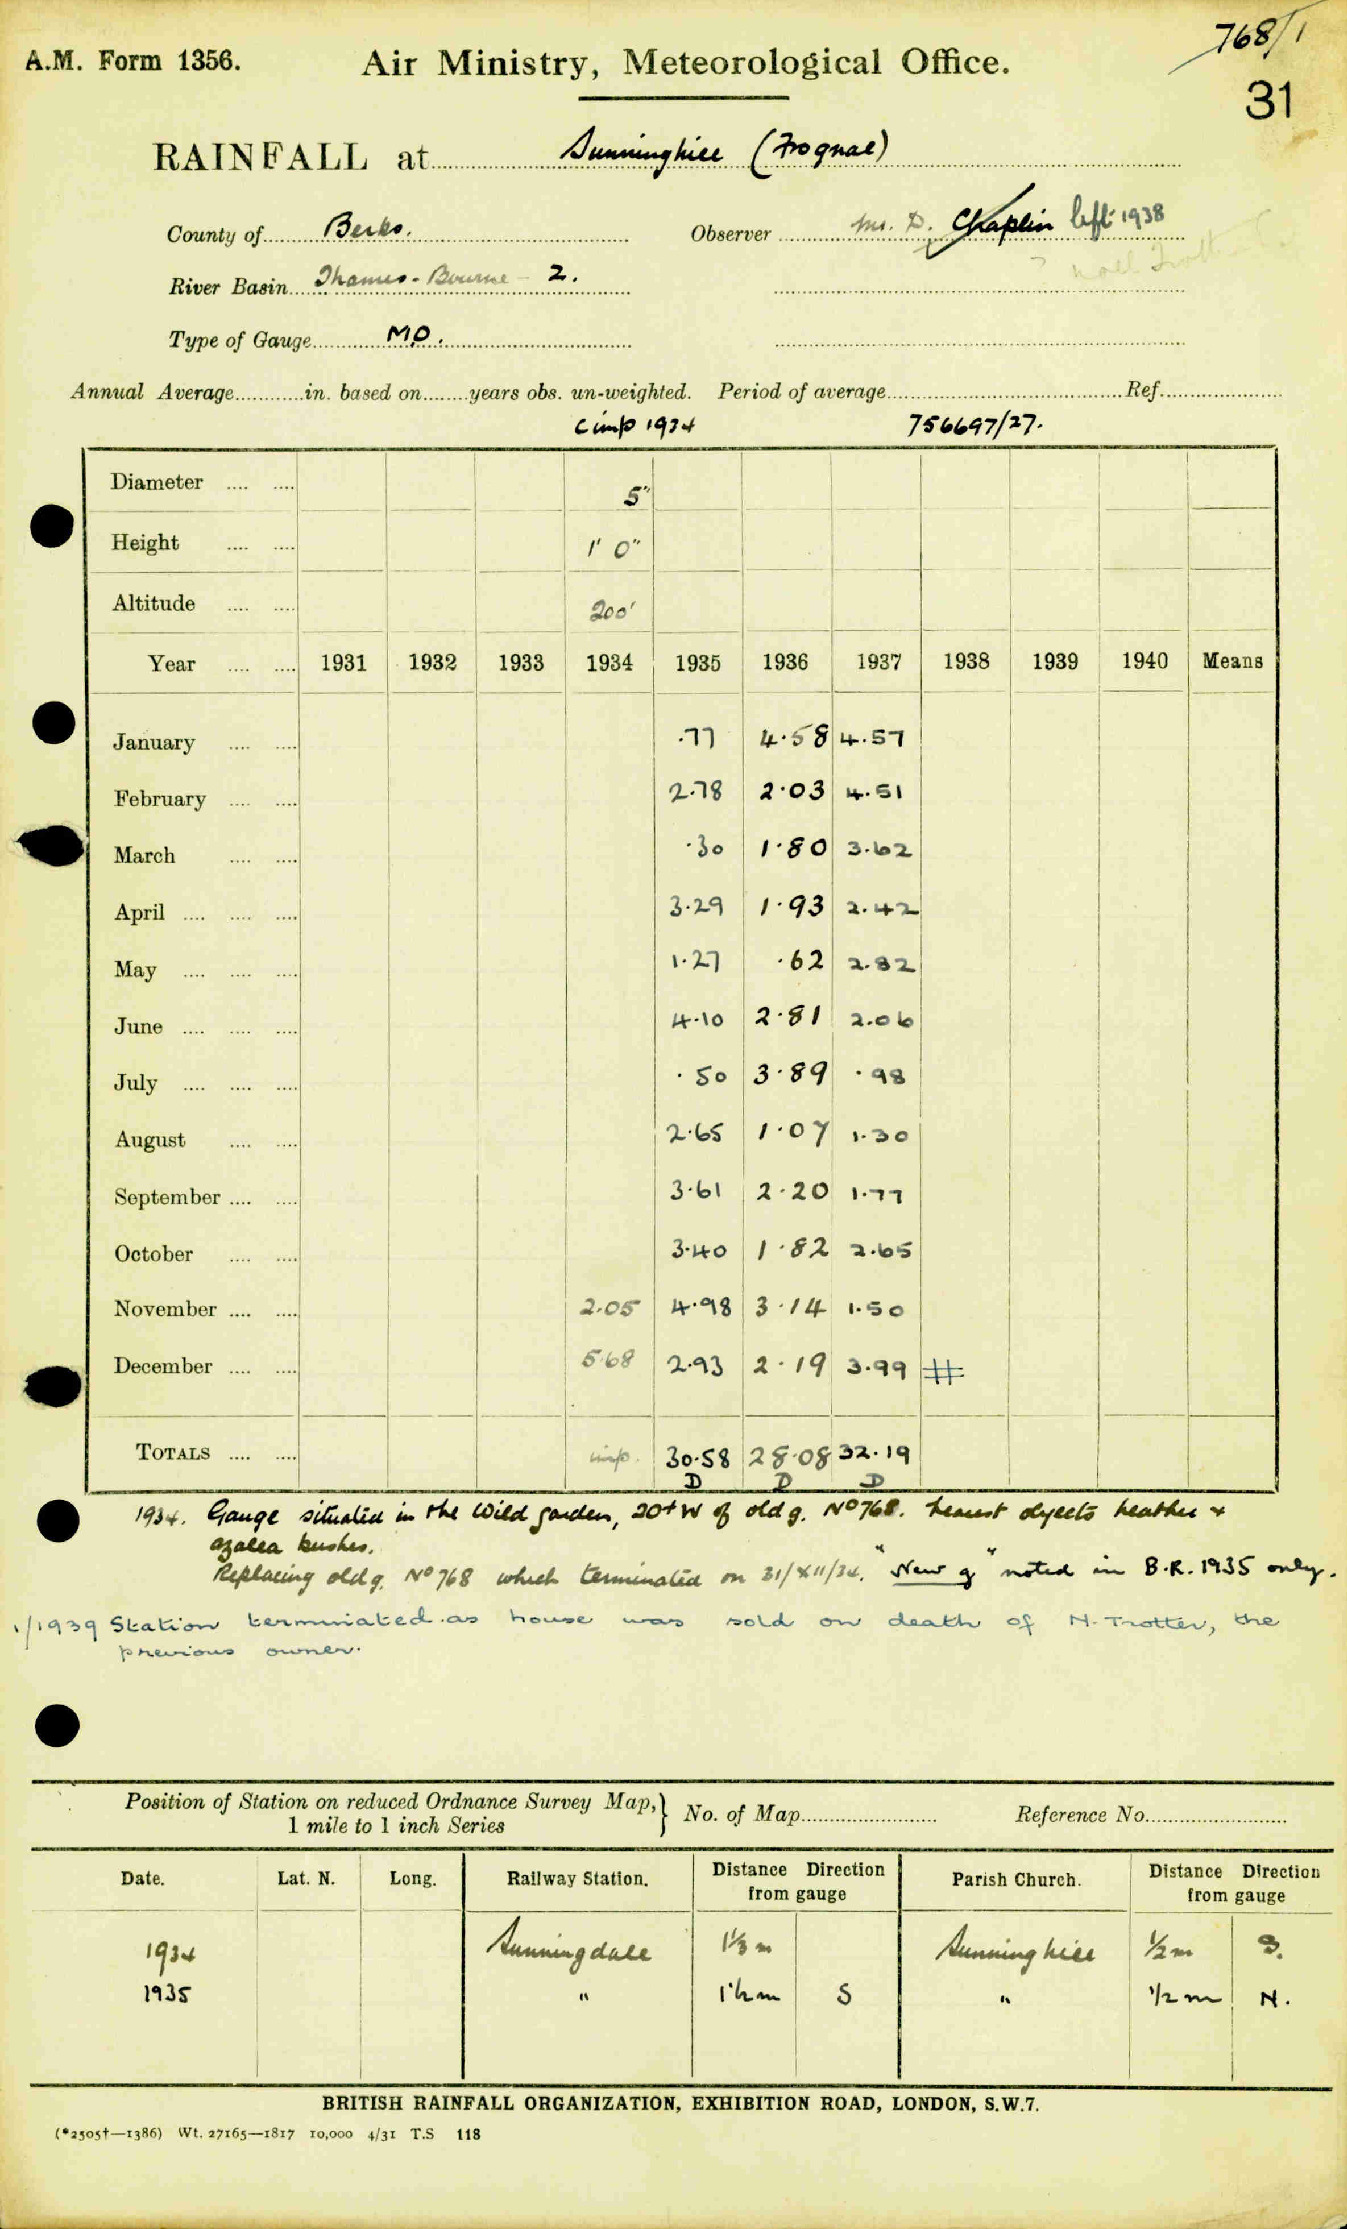 768/1
A.M. Form 1356. Air Ministry, Meteorological Office.
31
RAINFALL at Sunninghill (Frognal)
County of Berks. Observer Mr. D. Chaplin left 1938
River Basin Thames - Bourne - 2.
Type of Gauge M.O.
Annual Average in. based on years obs. un-weighted. Period of average Ref.
c imp 1934 756697/27.
Diameter .... .... 5"
Height .... .... 1' 0"
Altitude .... .... 200'
Year .... .... 1931 1932 1933 1934 1935 1936 1937 1938 1939 1940 Means
January .... .... .77 4.58 4.57
February .... .... 2.78 2.03 4.51
March .... .... .30 1.80 3.62
April .... .... .... 3.29 1.93 2.42
May .... .... .... 1.27 .62 2.82
June .... .... .... 4.10 2.81 2.06
July .... .... .... .50 3.89 .98
August .... .... 2.65 1.07 1.30
September .... .... 3.61 2.20 1.77
October .... .... 3.40 1.82 2.65
November .... .... 2.05 4.98 3.14 1.50
December .... .... 5.68 2.93 2.19 3.99
TOTALS .... .... imp. 30.58 28.08 32.19
D D D
1934. Gauge situated in the Wild garden, 20+ W of old g. No 768. Nearest objects heather +
azalea bushes.
Replacing old g. No 768 which terminated on 31/XII/34. "New g" noted in B.R. 1935 only.
1/1939 Station terminated as house was sold on death of N. Trotter, the
previous owner.
Position of Station on reduced Ordnance Survey Map,} No. of Map Reference No.
1 mile to 1 inch Series
Date. Lat. N. Long. Railway Station. Distance Direction from gauge Parish Church. Distance Direction from gauge
1934 Sunningdale 1⅓ m Sunninghill ½ m S.
1935 " 1½ m S " ½ m N.
BRITISH RAINFALL ORGANIZATION, EXHIBITION ROAD, LONDON, S.W.7.
(*2505†—1386) Wt. 27165—1817 10,000 4/31 T.S 118